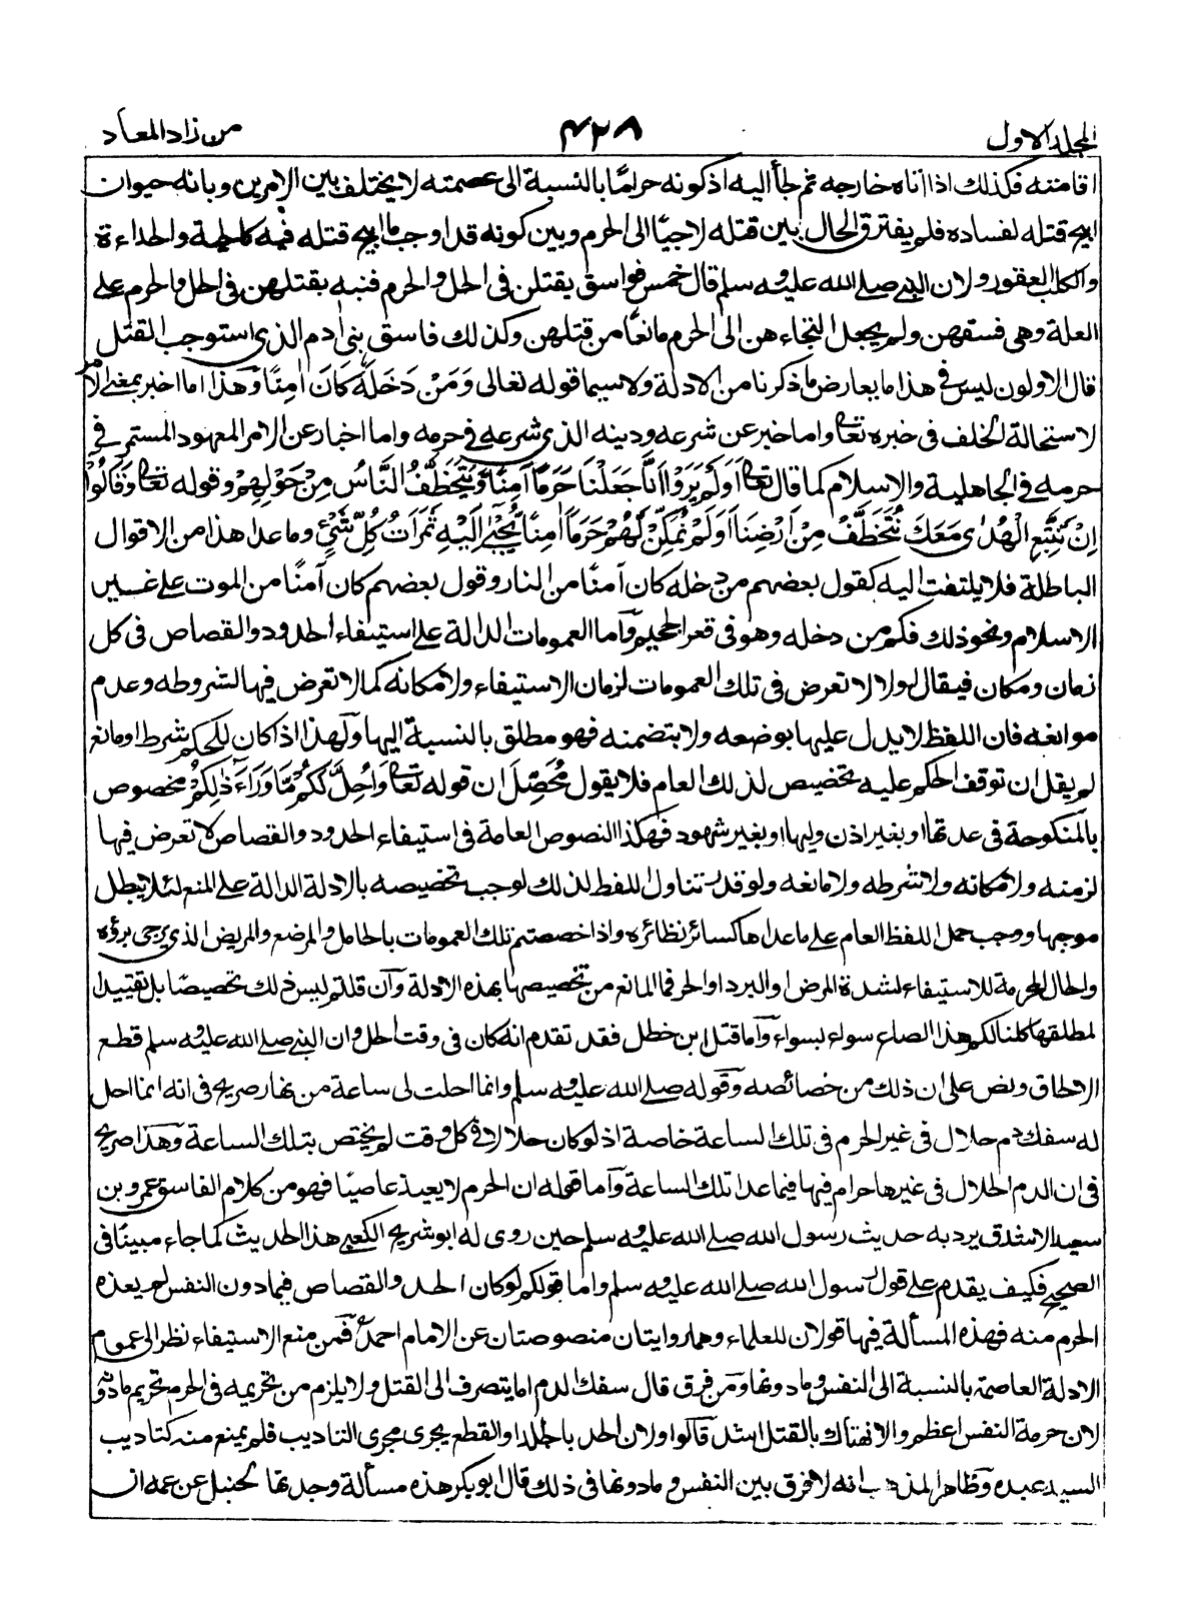 المجلد الاول ٤٢٨ من زاد المعاد
اقامته فكذلك اذا اتاه خارجه ثم لجأ اليه اذ كونه حراما بالنسبة الى عصمته لا يختلف بين الامرين وبانه حيوان
ابيح قتله لفساده فلم يفترق الحال بين قتله لاجيًا الى الحرم وبين كونه قد اوجب ما ابيح قتله فيه كالحية والحداءة
والكلب العقور ولان النبي صلى الله عليه وسلم قال خمس فواسق يقتلن في الحل والحرم فنبه بقتلهن في الحل والحرم على
العلة وهي فسقهن ولم يجعل التجاءهن الى الحرم مانعًا من قتلهن وكذلك فاسق بني ادم الذي استوجب القتل
قال الاولون ليس في هذا ما يعارض ما ذكرنا من الادلة ولا سيما قوله تعالى وَمَنْ دَخَلَهُ كَانَ اٰمِنًا وهذا اما اخبر بمعنى الامر
لاستحالة الخلف في خبره تعا واما خبر عن شرعه ودينه الذي شرعه في حرمه واما اخبار عن الامر المعهود المستمر في
حرمه في الجاهلية والاسلام كما قال تعا اَوَلَمْ يَرَوْا اَنَّا جَعَلْنَا حَرَمًا آمِنًا وَيُتَخَطَّفُ النَّاسُ مِنْ حَوْلِهِمْ وقوله تعا وَقَالُوْا
اِنْ نَتَّبِعِ الْهُدٰى مَعَكَ نُتَخَطَّفْ مِنْ اَرْضِنَا اَوَلَمْ نُمَكِّنْ لَهُمْ حَرَمًا اٰمِنًا يُجْبٰى اِلَيْهِ ثَمَرَاتُ كُلِّ شَيْءٍ وما عدا هذا من الاقوال
الباطلة فلا يلتفت اليه كقول بعضهم من دخله كان آمنًا من النار وقول بعضهم كان آمنًا من الموت على غير
الاسلام ونحو ذلك فكم من دخله وهو في قعر الجحيم وآما العمومات الدالة على استيفاء الحدود والقصاص في كل
زمان ومكان فيقال اولا لا تعرض في تلك العمومات لزمان الاستيفاء ولا مكانه كما لا تعرض فيها لشروطه وعدم
موانغه فان اللفظ لا يدل عليها بوضعه ولا بتضمنه فهو مطلق بالنسبة اليها ولهذا اذا كان للحكم شرط او مانع
لم يقل ان توقف الحكم عليه تخصيص لذلك العام فلا يقول مُحَصِّل ان قوله تعا وَاُحِلَّ لَكُمْ مَّا وَرَاءَ ذٰلِكُمْ مخصوص
بالمنكوحة في عدتها او بغير اذن وليها او بغير شهود فهكذا النصوص العامة في استيفاء الحدود والقصاص لا تعرض فيها
لزمنه ولا مكانه ولا شرطه ولا مانغه ولو قدر تناول اللفظ لذلك لوجب تخصيصه بالادلة الدالة على المنع لئلا يبطل
موجبها ووجب حمل اللفظ العام على ما عداها كسائر نظائره واذا خصصتم تلك العمومات بالحامل والمرضع والمريض الذي يرجى برؤه
والحال المحرمة للاستيفاء لشدة المرض او البرد او الحر فما المانع من تخصيصها بهذه الادلة وآن قلتم ليس ذلك تخصيصًا بل تقييدا
لمطلقها كلنا لكم هذا الصاع سواء بسواء وآما قتل ابن خطل فقد تقدم انه كان في وقت الحل وان النبي صلى الله عليه وسلم قطع
الالحاق ونص على ان ذلك من خصائصه وقوله صلى الله عليه وسلم وانما احلت لي ساعة من نهار صريح في انه انما احل
له سفك دم حلال في غير الحرم في تلك الساعة خاصة اذ لو كان حلالا في كل وقت لم يختص بتلك الساعة وهذا صريح
في ان الدم الحلال في غيرها حرام فيها فيما عدا تلك الساعة وآما قوله ان الحرم لا يعيذ عاصيًا فهو من كلام الفاسق عمرو بن
سعيد الاشدق يرد به حديث رسول الله صلى الله عليه وسلم حين روى له ابو شريح الكعبي هذا الحديث كما جاء مبينًا في
الصحيح فكيف يقدم على قول رسول الله صلى الله عليه وسلم واما قولكم لو كان الحد والقصاص فيما دون النفس لم يعذه
الحرم منه فهذه المسألة فيها قولان للعلماء وهما روايتان منصوصتان عن الامام احمد فمن منع الاستيفاء نظر الى عموم
الادلة العاصمة بالنسبة الى النفس وما دونها ومن فرق قال سفك الدم انما يتصرف الى القتل ولا يلزم من تحريمه في الحرم تحريم ما دونه
لان حرمة النفس اعظم والانهتاك بالقتل اشد قالوا ولان الحد بالجلد او القطع يجرى مجرى التاديب فلم يمنع منه كتاديب
السيد عبده وظاهر المذهب انه لا فرق بين النفس وما دونها في ذلك قال ابو بكر هذه مسألة وجدتها لحنبل عن عمه ان